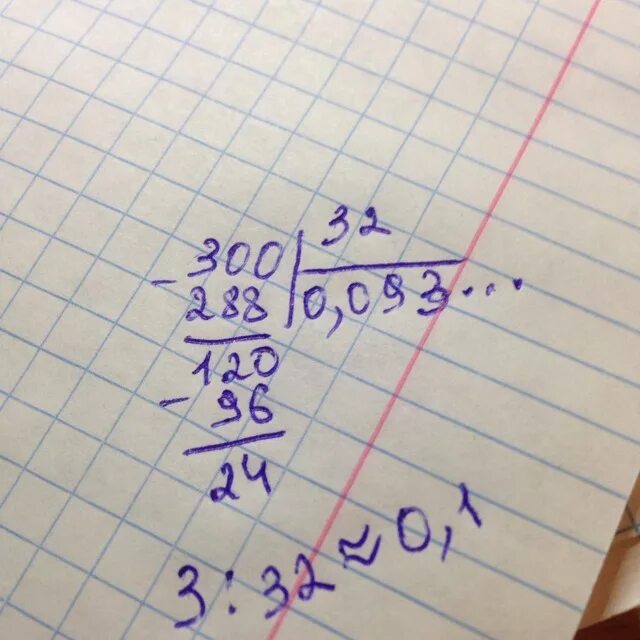 32
- 300 0,093...
288
120
- 96
24
3 : 32 ≈ 0,1